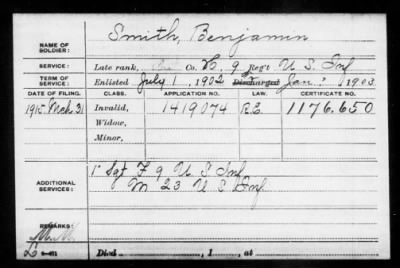 NAME OF SOLDIER: Smith, Benjamin
SERVICE: Late rank, Co. 9 Regt U S Inf
TERM OF SERVICE: Enlisted July 1, 1902 Discharged Jan. 1903
DATE OF FILING. CLASS. APPLICATION NO. LAW. CERTIFICATE NO.
1915 Mch 31 Invalid, 1419074 R.E. 1176.650
Widow,
Minor,
ADDITIONAL SERVICES: Sgt F 9 U S Inf
M 23 U S Inf
REMARKS:
Died , 1 , at